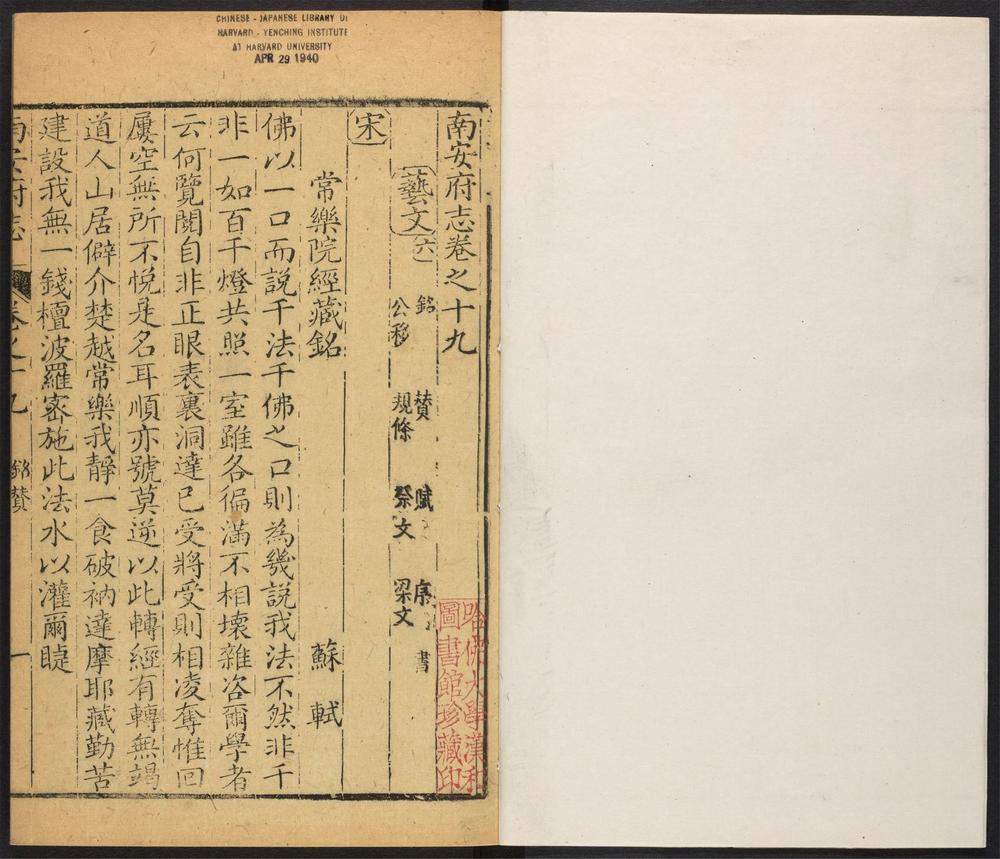 CHINESE - JAPANESE LIBRARY OF
HARVARD - YENCHING INSTITUTE
AT HARVARD UNIVERSITY
APR 29 1940
南安府志卷之十九
藝文六
銘 贊 賦 序 書
公移 規條 祭文 梁文
宋
常樂院經藏銘 蘇軾
佛以一口而説千法千佛之口則為幾説我法不然非千
非一如百千燈共照一室雖各徧滿不相壞雜咨爾學者
云何覽閱自非正眼表裏洞達已受將受則相凌奪惟回
屢空無所不悅是名耳順亦號莫逆以此轉經有轉無竭
道人山居僻介楚越常樂我靜一食破衲達摩耶藏勤苦
建設我無一錢檀波羅蜜施此法水以灌爾睫
南安府志 卷之十九 銘贊 一
哈佛大學漢和
圖書館珍藏印